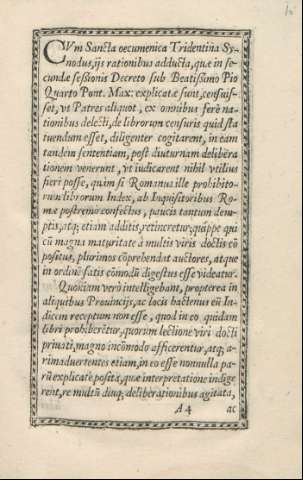 CVm Sancta oecumenica Tridentina Sy-
nodus, ijs rationibus adducta, quæ in se-
cundæ seßionis Decreto sub Beatißimo Pio
Quarto Pont. Max: explicatæ sunt, censuis-
set, vt Patres aliquot, ex omnibus ferè na-
tionibus delecti, de librorum censuris quid sta
tuendum esset, diligenter cogitarent, in eam
tandem sententiam, post diuturnam delibera
tionem venerunt, vt iudicarent nihil vtilius
fieri posse, quàm si Romanus ille prohibito-
rum librorum Index, ab Inquisitoribus Ro-
mæ postremò confectus, paucis tantum dem-
ptis, atq; etiam additis, retineretur: quippe qui
cũ magna maturitate à multis viris doctis cõ
positus, plurimos cõprehendat auctores, atque
in ordinẽ satis cõmodũ digestus esse videatur.
Quoniam verò intelligebant, propterea in
aliquibus Prouincijs, ac locis hactenus eũ In-
dicem receptum non esse, quod in eo quidam
libri prohiberẽtur, quorum lectione viri docti
priuati, magno incõmodo afficerentur, atq; a-
nimaduertentes etiam, in eo esse nonnulla pa-
rũ explicatè posita, quæ interpretatione indige
rent, re multũ diuq; deliberationibus agitata,
A 4 ac